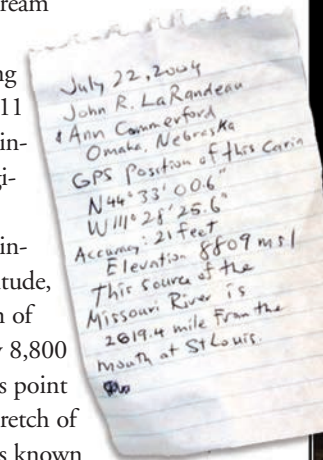 ream
ng
11
in-
gi-
in-
tude,
n of
y 8,800
s point
retch of
s known
July 22, 2004
John R. LaRandeau
& Ann Commerford
Omaha, Nebraska
GPS Position of this Carin
N44° 33' 00.6"
W111° 28' 25.6"
Accuracy: 21 feet
Elevation 8809 msl
This source of the
Missouri River is
2619.4 mile From the
mouth at St Louis.